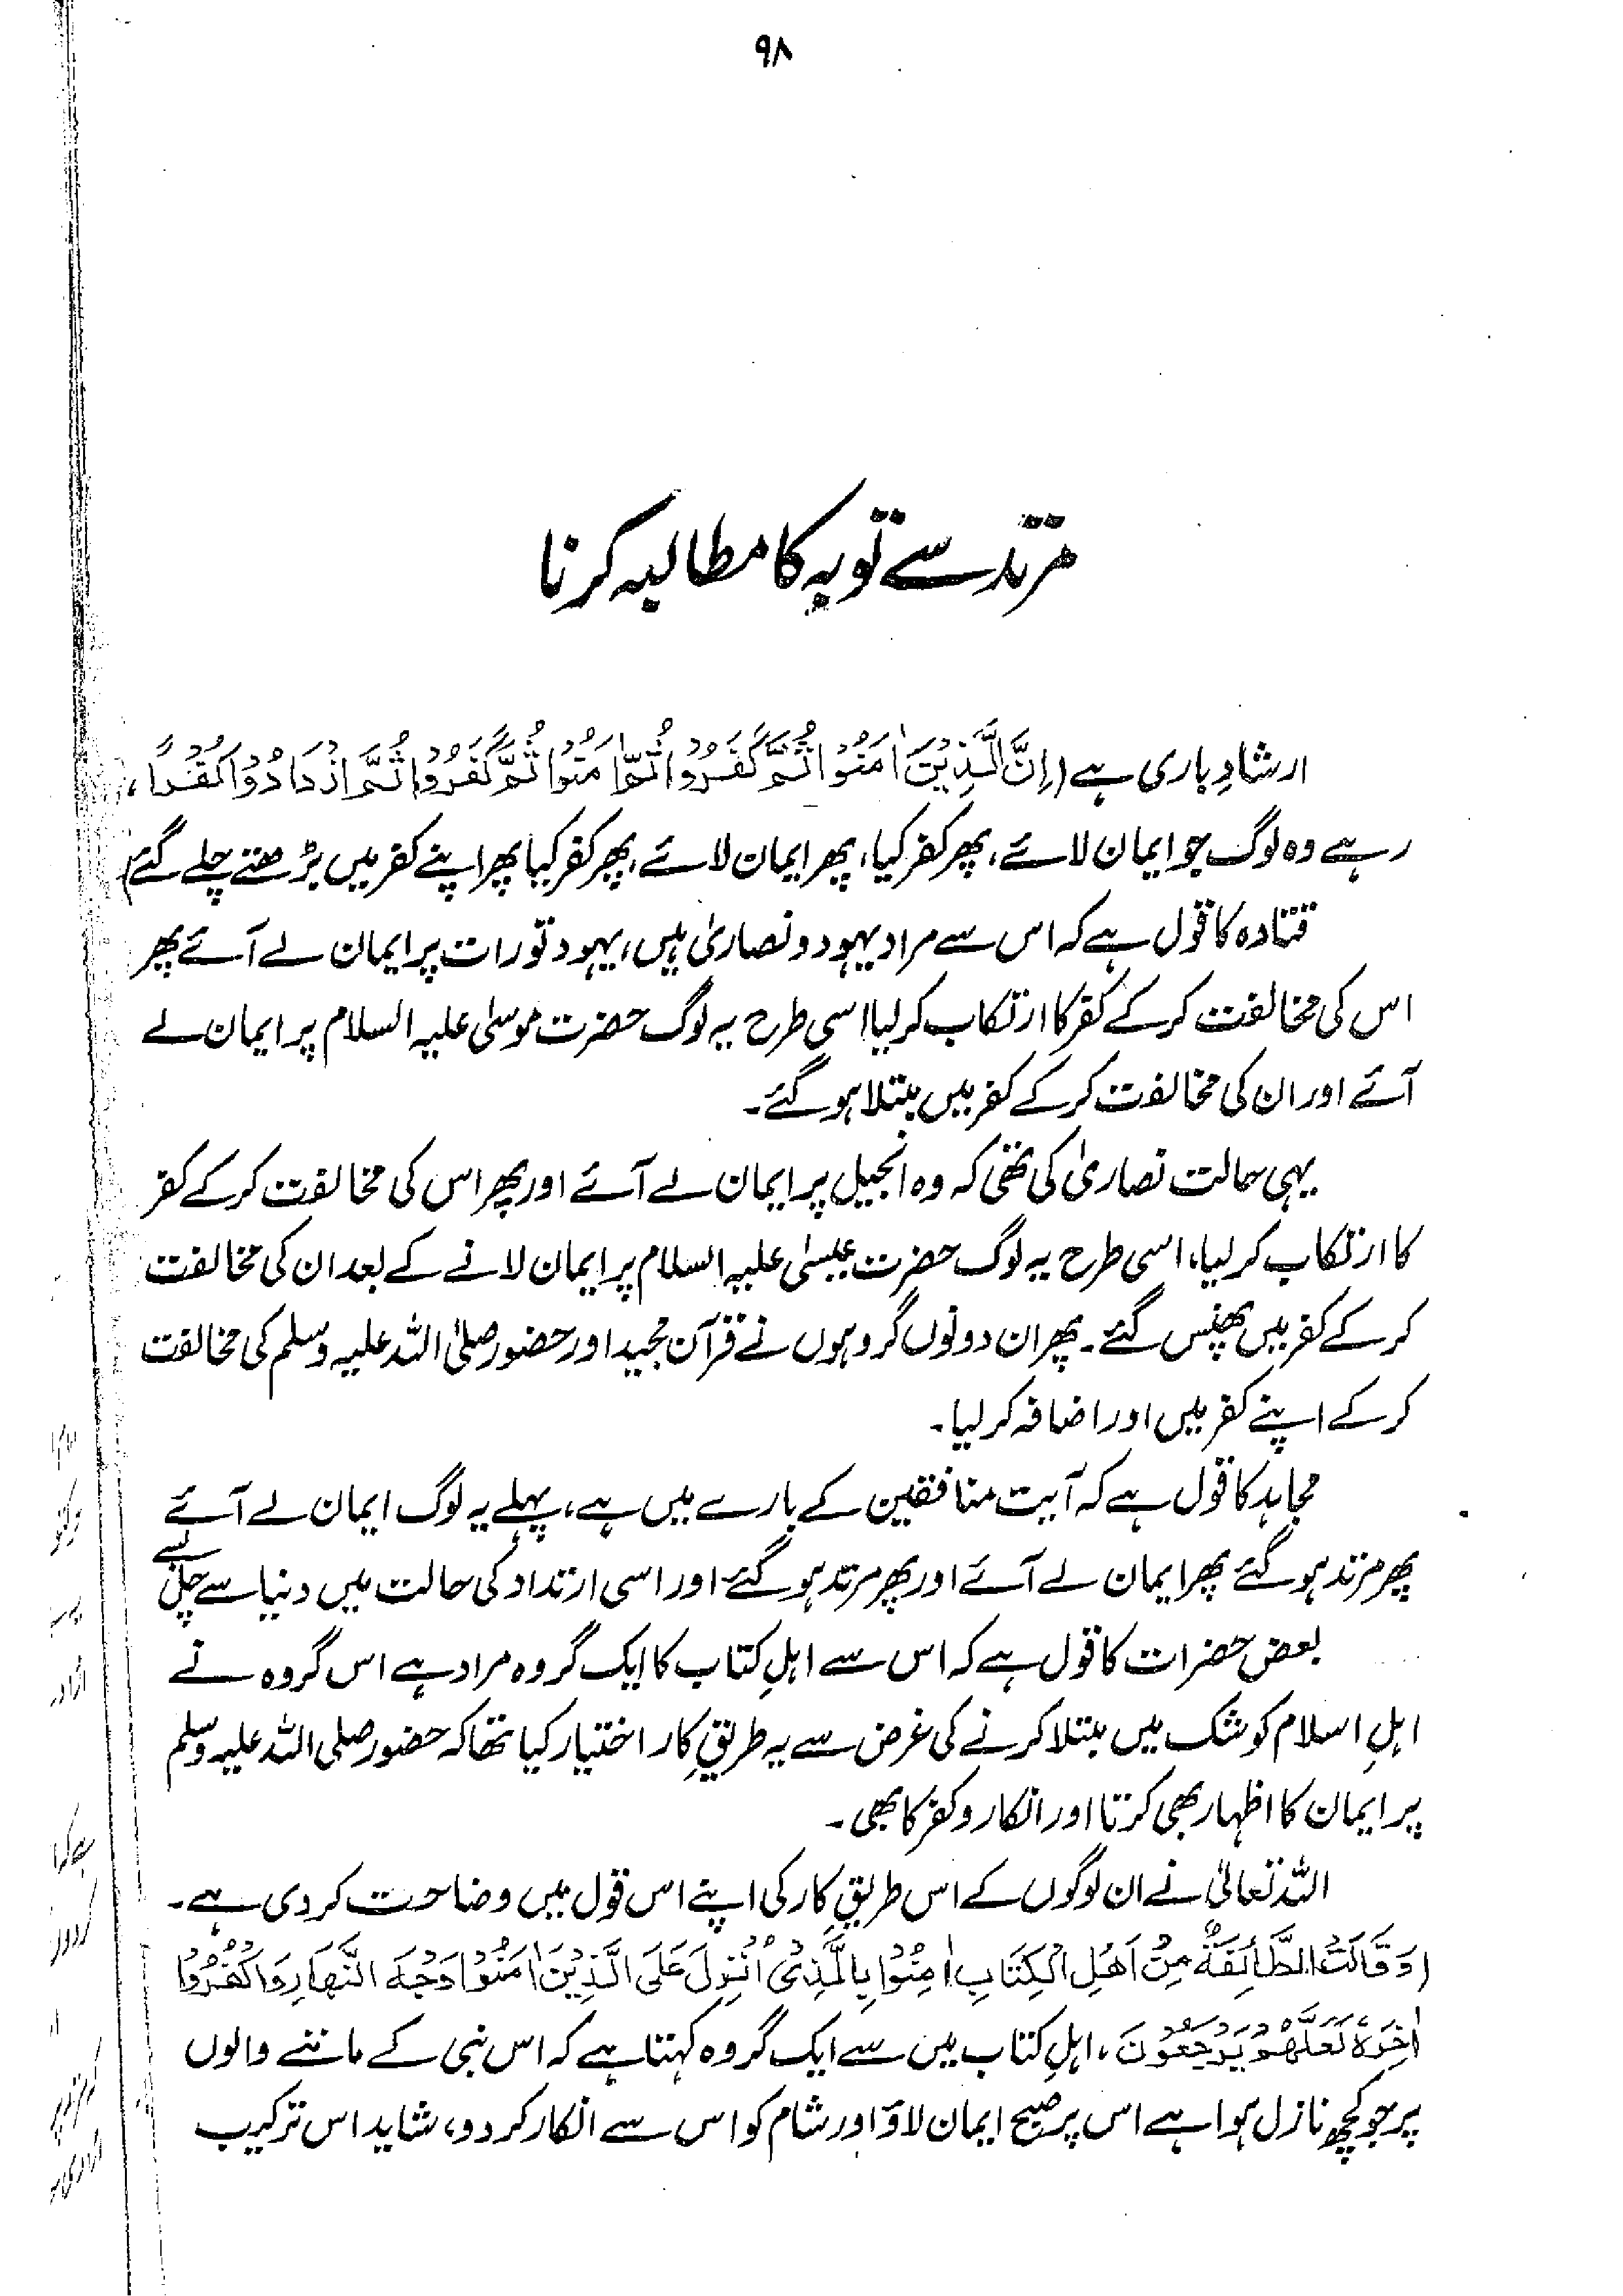 ۹۸
مرتد سے توبہ کا مطالبہ کرنا
ارشادِ باری ہے (اِنَّ الَّذِیْنَ اٰمَنُوْا ثُمَّ کَفَرُوْا ثُمَّ اٰمَنُوْا ثُمَّ کَفَرُوْا ثُمَّ ازْدَادُوْا کُفْرًا،
رہے وہ لوگ جو ایمان لائے، پھر کفر کیا، پھر ایمان لائے، پھر کفر کیا پھر اپنے کفر میں بڑھتے چلے گئے)
قتادہ کا قول ہے کہ اس سے مراد یہود و نصاریٰ ہیں، یہود تورات پر ایمان لے آئے پھر
اس کی مخالفت کر کے کفر کا ارتکاب کر لیا اسی طرح یہ لوگ حضرت موسیٰ علیہ السلام پر ایمان لے
آئے اور ان کی مخالفت کر کے کفر میں مبتلا ہو گئے۔
یہی حالت نصاریٰ کی تھی کہ وہ انجیل پر ایمان لے آئے اور پھر اس کی مخالفت کر کے کفر
کا ارتکاب کر لیا، اسی طرح یہ لوگ حضرت عیسیٰ علیہ السلام پر ایمان لانے کے بعد ان کی مخالفت
کر کے کفر میں پھنس گئے۔ پھر ان دونوں گروہوں نے قرآن مجید اور حضور صلی اللہ علیہ وسلم کی مخالفت
کر کے اپنے کفر میں اور اضافہ کر لیا۔
مجاہد کا قول ہے کہ آیت منافقین کے بارے میں ہے، پہلے یہ لوگ ایمان لے آئے
پھر مرتد ہو گئے پھر ایمان لے آئے اور پھر مرتد ہو گئے اور اسی ارتداد کی حالت میں دنیا سے چل بسے
بعض حضرات کا قول ہے کہ اس سے اہلِ کتاب کا ایک گروہ مراد ہے اس گروہ نے
اہلِ اسلام کو شک میں مبتلا کرنے کی غرض سے یہ طریقِ کار اختیار کیا تھا کہ حضور صلی اللہ علیہ وسلم
پر ایمان کا اظہار بھی کرتا اور انکار و کفر کا بھی۔
اللہ تعالیٰ نے ان لوگوں کے اس طریقِ کار کی اپنے اس قول میں وضاحت کر دی ہے۔
(وَقَالَتْ الطَّائِفَةٌ مِنْ اَهْلِ الْکِتَابِ اٰمِنُوْا بِالَّذِیْ اُنْزِلَ عَلَی الَّذِیْنَ اٰمَنُوْا وَجْهَ النَّهَارِ وَاکْفُرُوْا
اٰخِرَهٗ لَعَلَّهُمْ یَرْجِعُوْنَ، اہلِ کتاب میں سے ایک گروہ کہتا ہے کہ اس نبی کے ماننے والوں
پر جو کچھ نازل ہوا ہے اس پر صبح ایمان لاؤ اور شام کو اس سے انکار کر دو، شاید اس ترکیب